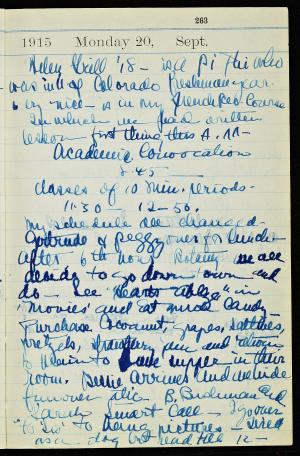 263
1915 Monday 20, Sept.
Helen Gill '18 - is a Pi Phi who
was in U of Colorado freshman year.
is in my French Rec. Course
in which we had written
lesson first thing this A.M.
Academic Convocation
8:45
Classes of 10 min. periods -
11:30 - 12-50.
My schedule all changed -
Gertrude & Peggy over for lunch -
After 6th hour Botany we all
decide to go down town and
do - See "Hearts Ablaze" in
"movies" and at Mrs candy -
Purchase Cocoanut, grapes, saltines,
pretzels, strawberry jam and
to have supper in their
room. Bessie arrives and we
B. Bushman and
Sarah Smart call - I go over
to hang pictures - tired
as a dog but read till 12 -